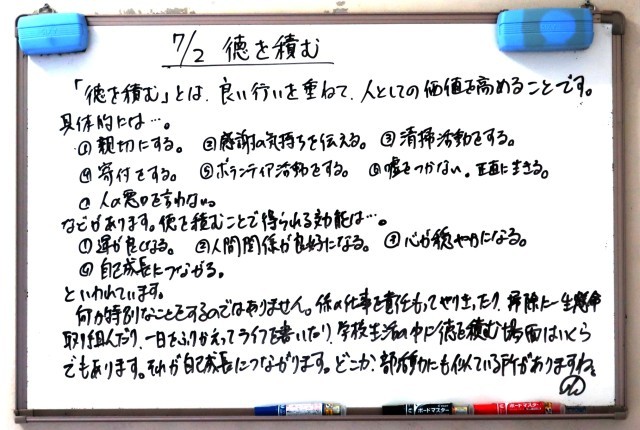 7/2 徳を積む
「徳を積む」とは、良い行いを重ねて、人としての価値を高めることです。
具体的には…。
①親切にする。 ②感謝の気持ちを伝える。 ③清掃活動をする。
④寄付をする。 ⑤ボランティア活動をする。 ⑥嘘をつかない。正直に生きる。
⑦人の悪口を言わない。
などがあります。徳を積むことで得られる効能は…。
①運が良くなる。 ②人間関係が良好になる。 ③心が穏やかになる。
④自己成長につながる。
といわれています。
何か特別なことをするのではありません。係の仕事を責任もってやりきったり、掃除に一生懸命
取り組んだり、一日をふりかえってライフを書いたり、学校生活の中に徳を積む場面はいくら
でもあります。それが自己成長につながります。どこか、部活動にも似ている所がありますね。
ボードマスター
ボードマスター